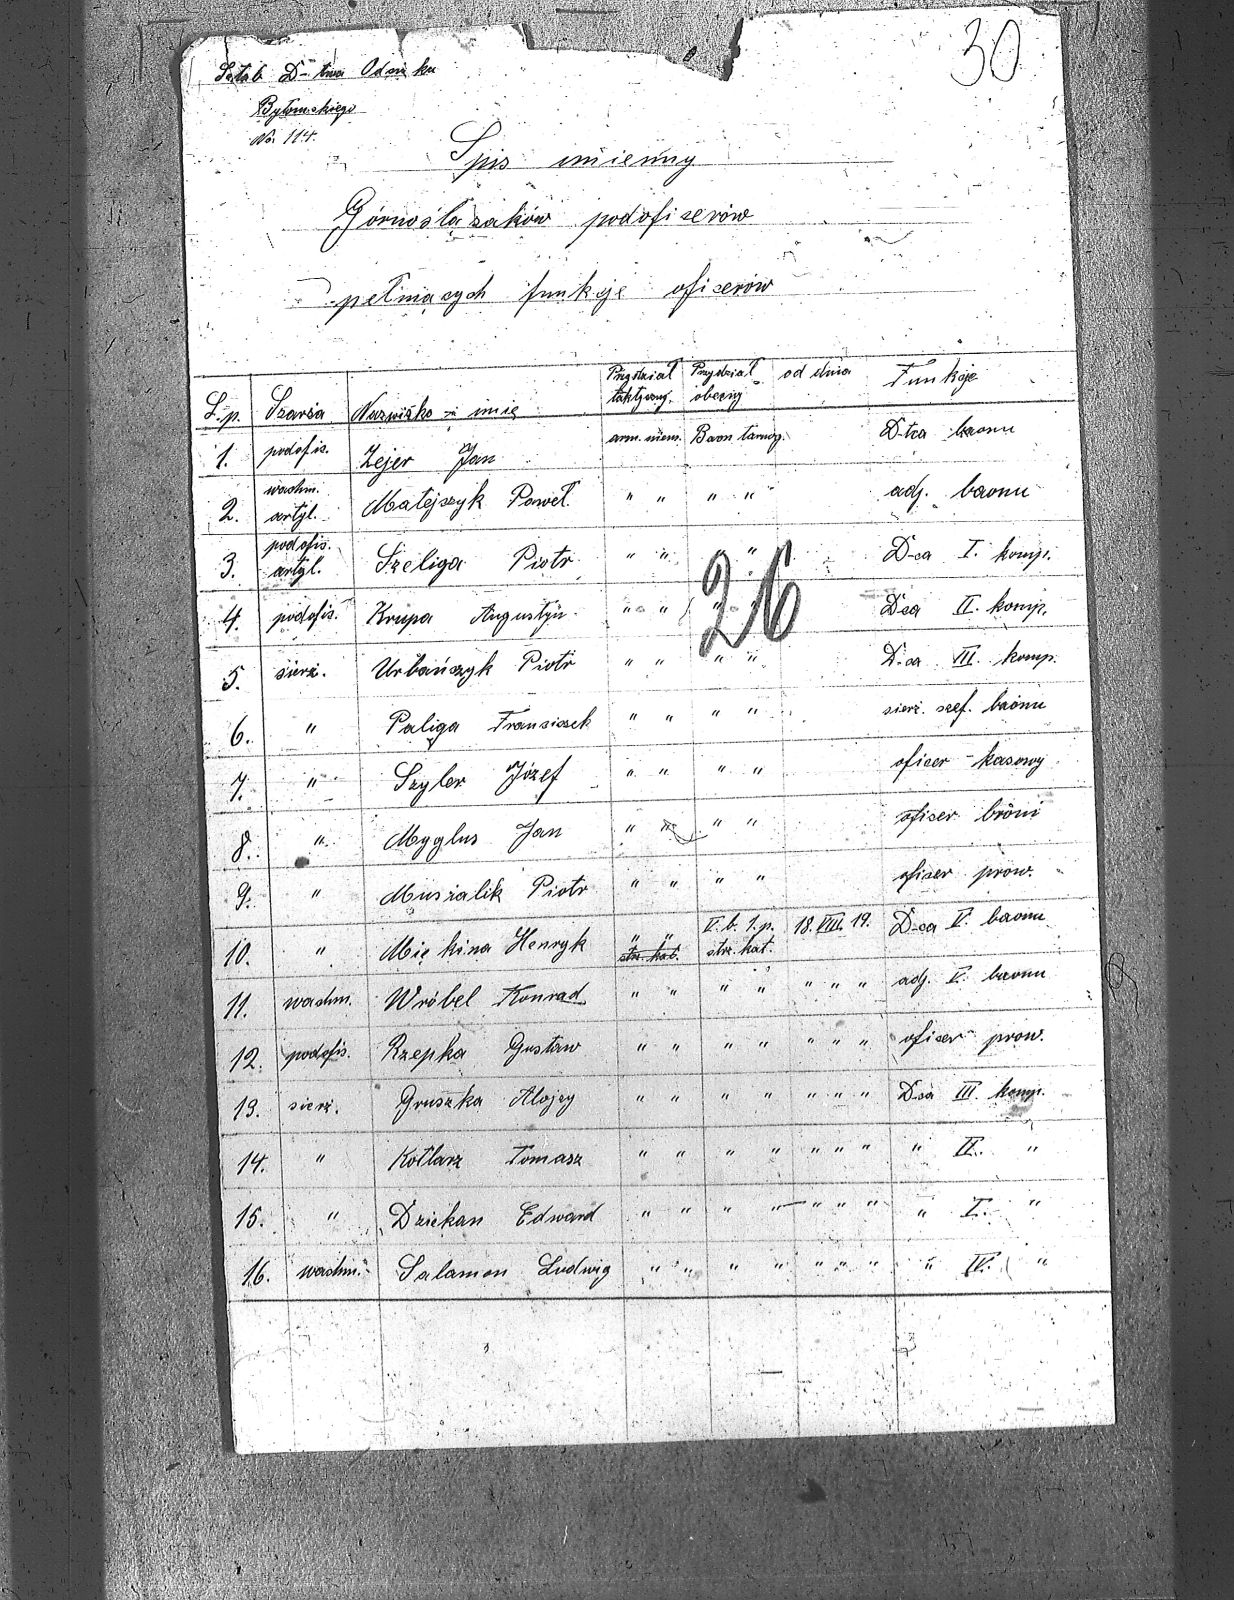 30
Sztab D-twa Odcinka
Bytomskiego
No. 114.
Spis imienny
Górnoślązaków podoficerów
pełniących funkcje oficerów
L.p. Szarża Nazwisko i imię Przydział taktyczny. Przydział obecny od dnia Funkcje
1. podofic. Zejer Jan arm. niem. Baon tarnog. D-tca baonu
2. wachm. artyl. Matejszyk Paweł " " " " adj. baonu
3. podofic. artyl. Szeliga Piotr " " " " D-ca I. komp.
4. podofic. Krupa Augustyn " " " " D-ca II. komp.
26
5. sierż. Urbańczyk Piotr " " " " D-ca III. komp.
6. " Paliga Franciszek " " " " sierż. szef. baonu
7. " Szyler Józef " " " " oficer kasowy
8. " Myglus Jan " " " " oficer broni
9. " Musialik Piotr " " " " oficer prow.
10. " Miękina Henryk " " str. kat. V. b. 1. p. strz. kat. 18. VIII. 19. D-ca V. baonu
11. wachm. Wróbel Konrad " " " " " " " adj. V. baonu
12. podofic. Rzepka Gustaw " " " " " " " oficer prow.
13. sierż. Gruszka Alojzy " " " " " " " D-ca III. komp.
14. " Kotlarz Tomasz " " " " " " " " II. "
15. " Dziekan Edward " " " " " " " " I. "
16. wachm. Salamon Ludwig " " " " " " " " IV. "